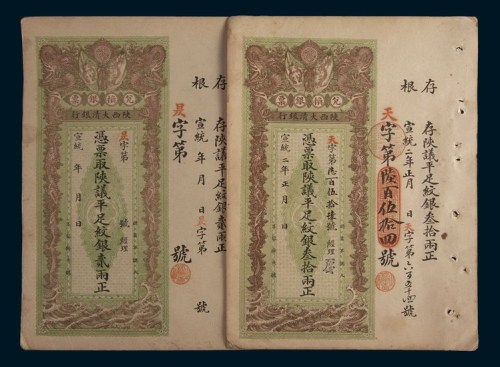 存根
存陝議平足紋銀叁拾兩正
宣統二年正月 日天字第六百五十四號
天字第陸百伍拾四號
兌換銀票
陝西大清銀行
天字第陸百伍拾肆號 經理
憑票取陝議平足紋銀叁拾兩正
宣統二年正月 日
存根
存陝議平足紋銀貳兩正
宣統 年 月 日 足字第 號
足字第 號
兌換銀票
陝西大清銀行
足字第 號 經理
憑票取陝議平足紋銀貳兩正
宣統 年 月 日